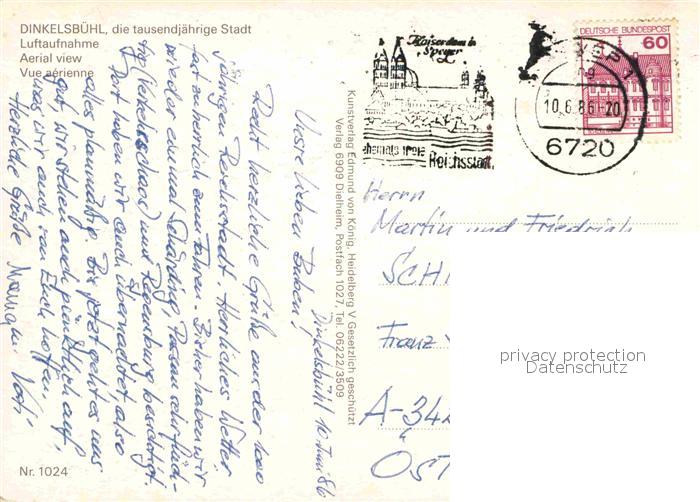 DINKELSBÜHL, die tausendjährige Stadt
Luftaufnahme
Aerial view
Vue aérienne
Dinkelsbühl 10 Juni 86
Unsre lieben Buben!
Recht herzliche Grüße aus der 1000
jährigen Reichsstadt. Herrliches Wetter
fast zu herrlich zum Fahren. Bisher haben wir
wieder einmal Schärding, Passau sehr flüch-
tig und Regensburg besichtigt.
Dort haben wir auch übernachtet also
alles planmäßig. Bis jetzt geht es uns
gut, wir stehen auch pünktlich auf,
was wir auch von Euch hoffen.
Herzliche Grüße Mama Vati
Nr. 1024
Kunstverlag Edmund von König, Heidelberg V Gesetzlich geschützt
Verlag 6909 Dielheim, Postfach 1027, Tel. 06222/3509
Kaiserdom in
Speyer
ehemals freie
Reichsstadt
DEUTSCHE BUNDESPOST
60
10.6.86-20
6720
Herrn
Martin und Friedrich
SCH
Franz
A-342
ÖST
privacy protection
Datenschutz